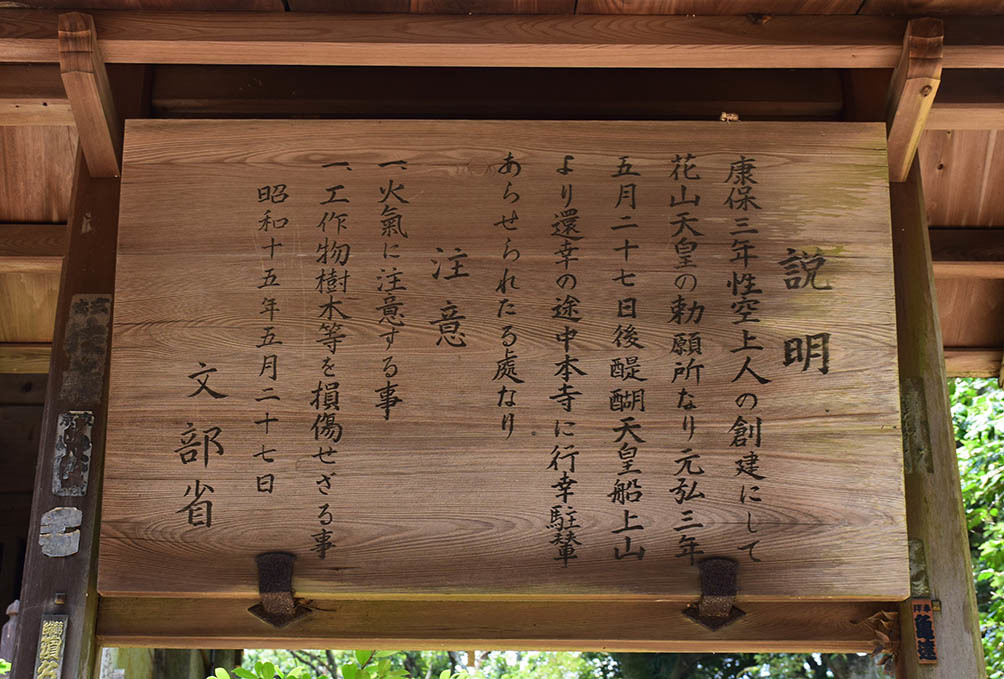 説明
康保三年性空上人の創建にして
花山天皇の勅願所なり元弘三年
五月二十七日後醍醐天皇船上山
より還幸の途中本寺に行幸駐輦
あらせられたる處なり
注意
一、火氣に注意する事
一、工作物樹木等を損傷せざる事
昭和十五年五月二十七日
文部省